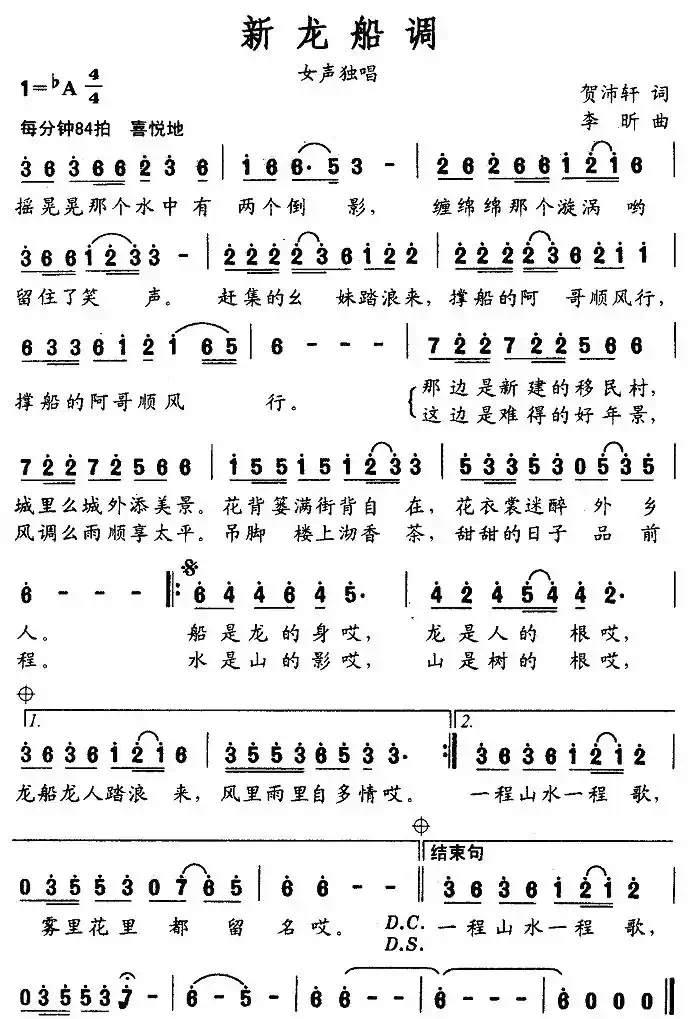 新龙船调
女声独唱
1=♭A 4/4
贺沛轩 词
每分钟84拍 喜悦地
李昕 曲
3 6 3 6 6 2 3 6 | 1 6 6· 5 3 - | 2 6 2 6 6 1 2 1 6 |
摇晃晃那个水中有 两个倒 影, 缠绵绵那个漩涡 哟
3 6 6 1 2 3 3 - | 2 2 2 2 3 6 1 2 2 | 2 2 2 2 3 6 2 1 1 |
留住了笑 声。 赶集的幺 妹踏浪来, 撑船的阿 哥顺风行,
6 3 3 6 1 2 1 6 5 | 6 - - - | 7 2 2 7 2 2 5 6 6 |
撑船的阿哥顺风 行。 那边是新建的移民村,
这边是难得的好年景,
7 2 2 7 2 5 6 6 | 1 5 5 1 5 1 2 3 3 | 5 3 3 5 3 0 5 3 5 |
城里么城外添美景。花背篓满街背自 在, 花衣裳迷醉 外 乡
风调么雨顺享太平。吊脚 楼上沏香 茶, 甜甜的日子 品 前
6 - - - 𝄆 6 4 4 6 4 5· | 4 2 4 5 4 4 2· |
人。 船是龙的身哎, 龙是人的 根哎,
程。 水是山的影哎, 山是树的 根哎,
1. 2.
3 6 3 6 1 2 1 6 | 3 5 5 3 6 5 3 3· 𝄇 3 6 3 6 1 2 1 2 |
龙船龙人踏浪 来, 风里雨里自多情哎。 一程山水一程 歌,
结束句
0 3 5 5 3 0 7 6 5 | 6 6 - - ‖ 3 6 3 6 1 2 1 2 |
雾里花里 都 留 名哎。 D.C. 一程山水一程 歌,
D.S.
0 3 5 5 3 7 - | 6 - 5 - | 6 6 - - | 6 - - - | 6 0 0 0 ‖